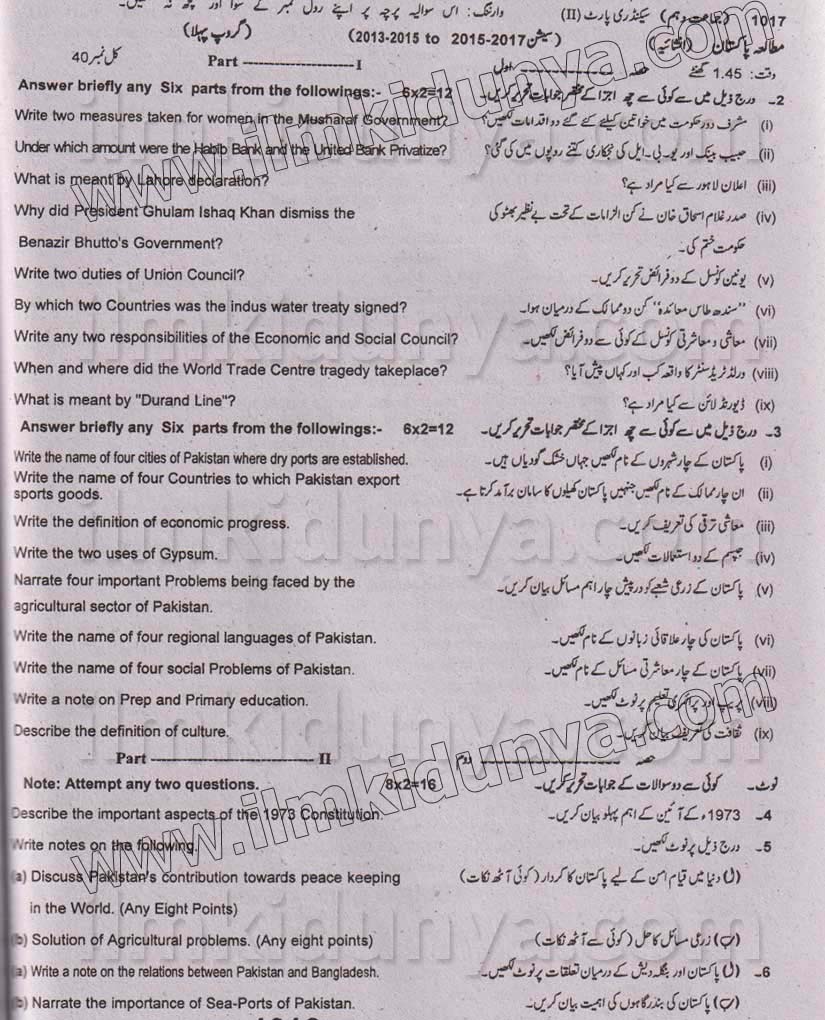 وارننگ: اس سوالیہ پرچہ پر اپنے رول نمبر کے سوا اور کچھ نہ لکھیں۔
1017 (جماعت دہم) سیکنڈری پارٹ (II)
مطالعہ پاکستان (انشائیہ) (سیشن 2015-2017 to 2013-2015) (گروپ پہلا)
وقت: 1.45 گھنٹے حصہ اول Part I کل نمبر 40
Answer briefly any Six parts from the followings:- 6x2=12 2۔ درج ذیل میں سے کوئی سے چھ اجزا کے مختصر جوابات تحریر کریں۔
Write two measures taken for women in the Musharaf Government? (i) مشرف دور حکومت میں خواتین کیلئے کئے گئے دو اقدامات لکھیں؟
Under which amount were the Habib Bank and the United Bank Privatize? (ii) حبیب بینک اور یو۔بی۔ایل کی نجکاری کتنے روپوں میں کی گئی؟
What is meant by Lahore declaration? (iii) اعلان لاہور سے کیا مراد ہے؟
Why did President Ghulam Ishaq Khan dismiss the (iv) صدر غلام اسحاق خان نے کن الزامات کے تحت بے نظیر بھٹو کی
Benazir Bhutto's Government? حکومت ختم کی۔
Write two duties of Union Council? (v) یونین کونسل کے دو فرائض تحریر کریں۔
By which two Countries was the indus water treaty signed? (vi) "سندھ طاس معائدہ" کن دو ممالک کے درمیان ہوا۔
Write any two responsibilities of the Economic and Social Council? (vii) معاشی و معاشرتی کونسل کے کوئی سے دو فرائض لکھیں۔
When and where did the World Trade Centre tragedy takeplace? (viii) ورلڈ ٹریڈ سنٹر کا واقعہ کب اور کہاں پیش آیا؟
What is meant by "Durand Line"? (ix) ڈیورنڈ لائن سے کیا مراد ہے؟
Answer briefly any Six parts from the followings:- 6x2=12 3۔ درج ذیل میں سے کوئی سے چھ اجزا کے مختصر جوابات تحریر کریں۔
Write the name of four cities of Pakistan where dry ports are established. (i) پاکستان کے چار شہروں کے نام لکھیں جہاں خشک گودیاں ہیں۔
Write the name of four Countries to which Pakistan export
sports goods. (ii) ان چار ممالک کے نام لکھیں جنہیں پاکستان کھیلوں کا سامان برآمد کرتا ہے۔
Write the definition of economic progress. (iii) معاشی ترقی کی تعریف کریں۔
Write the two uses of Gypsum. (iv) جپسم کے دو استعمالات لکھیں۔
Narrate four important Problems being faced by the (v) پاکستان کے زرعی شعبے کو درپیش چار اہم مسائل بیان کریں۔
agricultural sector of Pakistan.
Write the name of four regional languages of Pakistan. (vi) پاکستان کی چار علاقائی زبانوں کے نام لکھیں۔
Write the name of four social Problems of Pakistan. (vii) پاکستان کے چار معاشرتی مسائل کے نام لکھیں۔
Write a note on Prep and Primary education. (viii) پریپ اور پرائمری تعلیم پر نوٹ لکھیں۔
Describe the definition of culture. (ix) ثقافت کی تعریف بیان کریں۔
Part II حصہ دوم
Note: Attempt any two questions. 8x2=16 نوٹ۔ کوئی سے دو سوالات کے جوابات تحریر کریں۔
Describe the important aspects of the 1973 Constitution. 4۔ 1973ء کے آئین کے اہم پہلو بیان کریں۔
Write notes on the following. 5۔ درج ذیل پر نوٹ لکھیں۔
(a) Discuss Pakistan's contribution towards peace keeping (ا) دنیا میں قیام امن کے لیے پاکستان کا کردار (کوئی آٹھ نکات)
in the World. (Any Eight Points)
(b) Solution of Agricultural problems. (Any eight points) (ب) زرعی مسائل کا حل (کوئی سے آٹھ نکات)
(a) Write a note on the relations between Pakistan and Bangladesh. 6۔ (ا) پاکستان اور بنگلہ دیش کے درمیان تعلقات پر نوٹ لکھیں۔
(b) Narrate the importance of Sea-Ports of Pakistan. (ب) پاکستان کی بندرگاہوں کی اہمیت بیان کریں۔
www.ilmkidunya.com
www.ilmkidunya.com
ilmkidunya.com
ilmkidunya.com
ilmkidunya.com
ilmkidunya.com
ilmkidunya.com